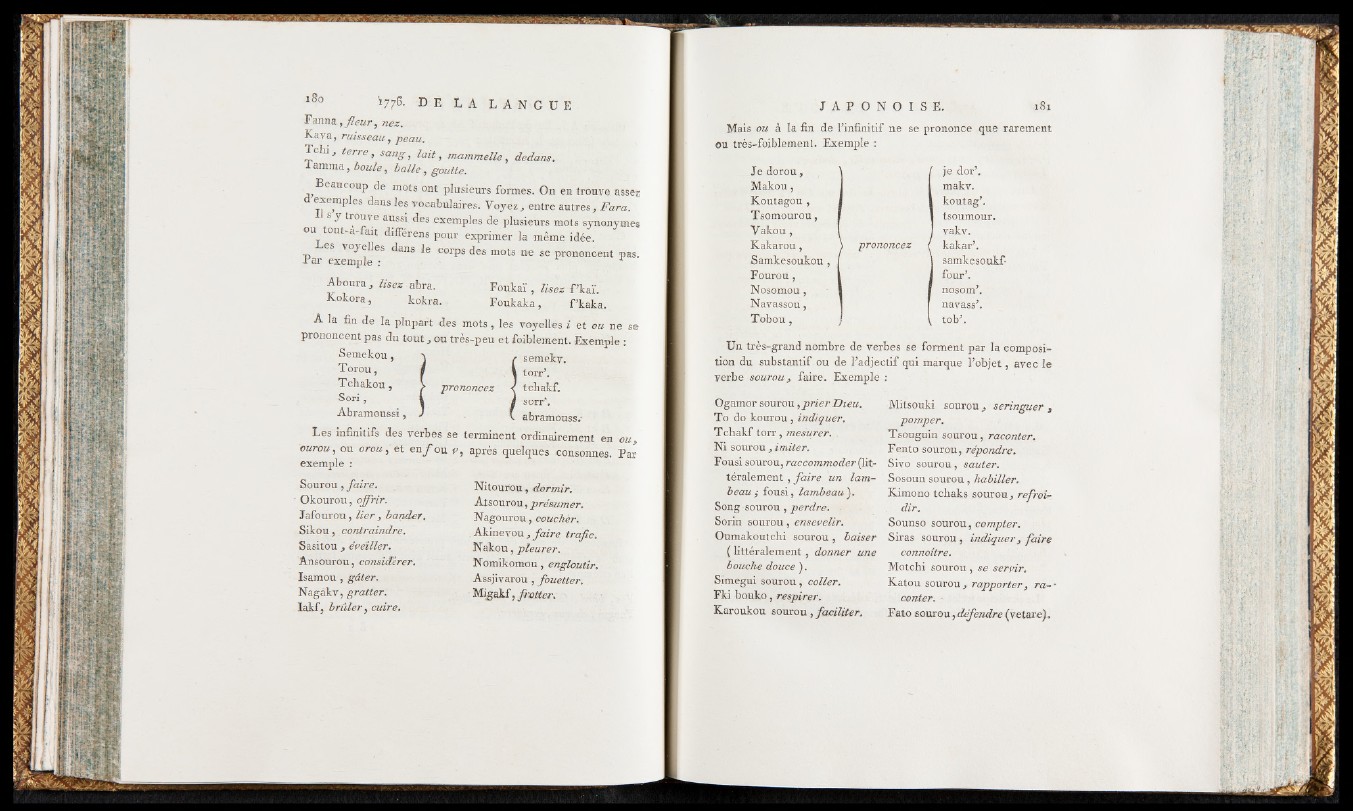 180 1776. DE LA LANGUE
Fanna, fleur, nez.
Kava, ruisseau, peau.
Tchi, terre, sang, lait, mammelle, dedans.
Tamma, boule, balle, goutte.
Beaucoup de mots ont plusieurs formes. On en trouve assez
d'exemples dans les vocabulaires. Voyez, entre autres, Fara.
Il s'y trouve aussi des exemples de plusieurs mots synonymes
ou tout-à-fait différens pour exprimer la même idée.
Les voyelles dans le corps des mots ne se prononcent pas.
Par exemple :
Aboura, lisez abra. Foukaï, lisez f'kaï.
Kokora, kokra. Foukaka, f'kaka.
A la fin de la plupart des mots, les voyelles i et ou ne se
prononcent pas du tout, ou très-peu et foiblement. Exemple :
Semekou, semekv.
Torou, torr'.
Tchakou, prononcez tchakf.
Sori, sorr'.
Abramoussi, abramouss.
Les infinitifs des verbes se terminent ordinairement en ou,
ourou, ou orou, et en f ou v, après quelques consonnes. Par
exemple :
Sourou, faire.
Okourou, offrir.
Jafourou, lier, bander.
Sikou, contraindre.
Sasitou, éveiller.
Ansourou, considérer.
Isamou, gâter.
Nagakv, gratter.
Iakf, brûler, cuire.
Nitourou, dormir.
Atsourou, présumer.
Nagourou, coucher.
Akinevou, faire trafic.
Nakou, pleurer.
Nomikomou, engloutir.
Assjivarou, fouetter.
Migakf, frotter.
JAPONOISE. 181
Mais ou à la fin de l'infinitif ne se prononce que rarement
ou très-foiblement. Exemple :
Je dorou, je dor'.
Makou, makv.
Koutagou, koutag'.
Tsomourou, tsoumour.
Yakou, yakv.
Kakarou, prononcez kakar'.
Samkesoukou, samkesoukf.
Fourou, four'.
Nosomou, nosom'.
Navassou, navass'.
Tobou, tob'.
Un très-grand nombre de verbes se forment par la composi-
tion du substantif ou de l'adjectif qui marque l'objet, avec le
verbe sourou, faire. Exemple :
Ogamor sourou, prier Dieu.
To do kourou, indiquer.
Tchakf torr, mesurer.
Ni sourou, imiter.
Fousi sourou, raccommoder (lit-
téralement, faire un lam-
beau ; fousi, lambeau).
Song sourou, perdre.
Sorin sourou, ensevelir.
Oumakoutchi sourou, baiser
(littéralement, donner une
bouche douce).
Simegui sourou, coller.
Fki bouko, respirer.
Karoukou sourou, faciliter.
Mitsouki sourou, seringuer,
pomper.
Tsouguin sourou, raconter.
Fento sourou, répondre.
Sivo sourou, sauter.
Sosoun sourou, habiller.
Kimono tchaks sourou, refroi-
dir.
Sounso sourou, compter.
Siras sourou, indiquer, faire
connoître.
Motchi sourou, se servir.
Katou sourou, rapporter, ra-
conter.
Fato sourou, défendre (vetare).